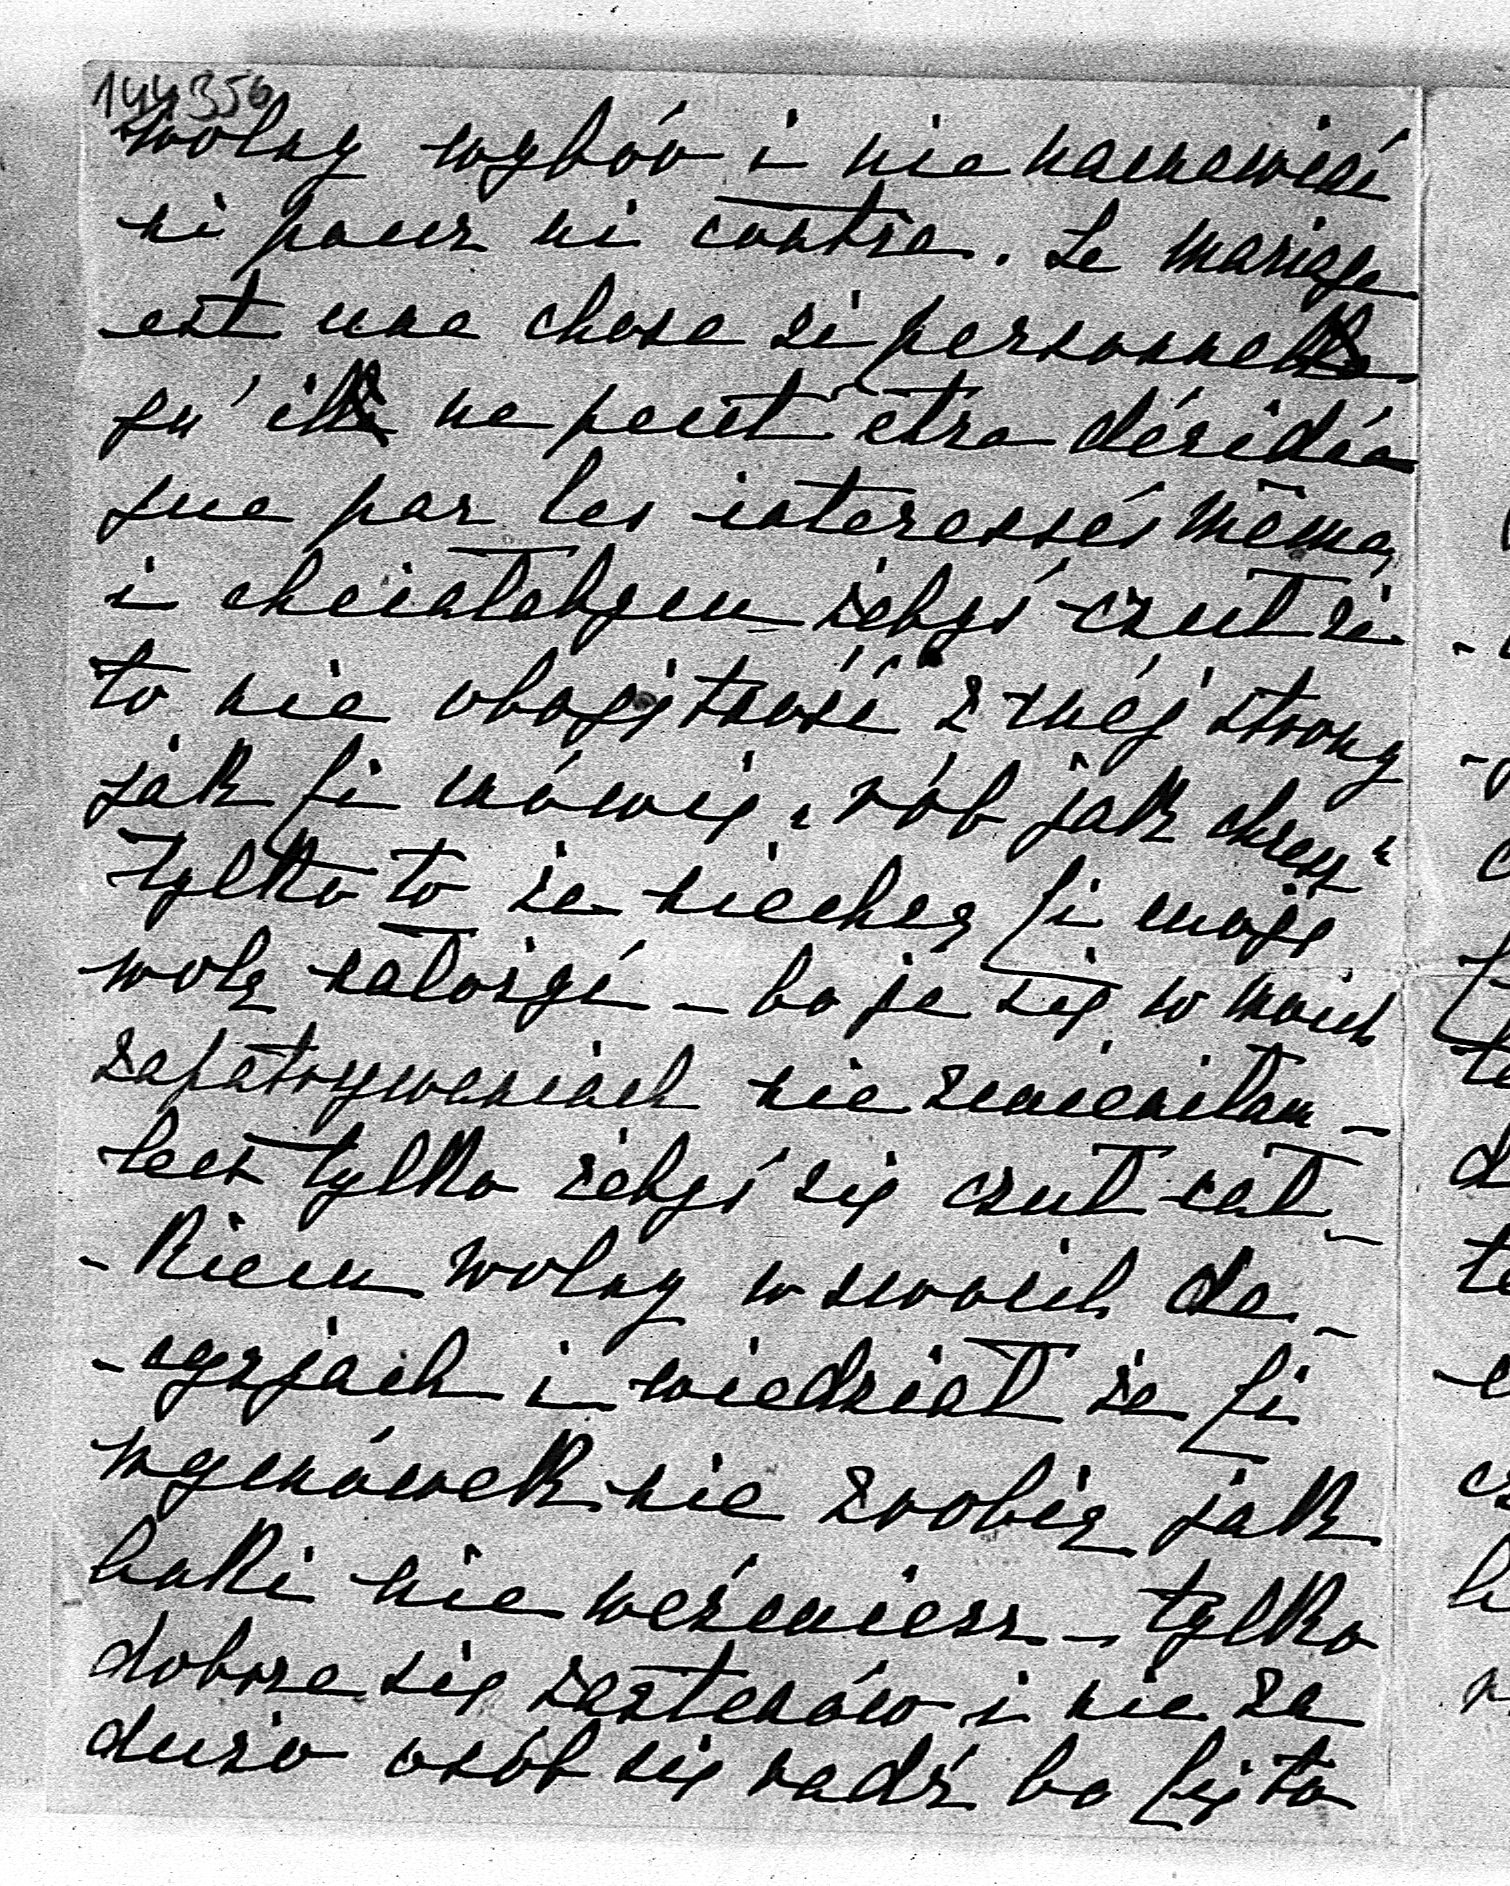 144356
wolny wybór i nie namawiać
ni pour ni contre. Le mariage
est une chose si personnelle
qu'il ne peut être décidée
que par les interessés même,
i chciałabym żebyś czuł że
to nie obojętność z méj strony
jak Ci mówię „rób jak chcesz"
tylko to że niechcę Ci moję
wolę nałożyć – bo ja się w moich
zapatrywaniach nie zmieniłam –
lecz tylko żebyś się czuł cał-
-kiem wolny w swoich de-
-cyzjach i wiedział że Ci
wymówek nie zrobię jak
Luki nie weźmiesz – tylko
dobrze się zastanów i nie za
dużo osób się radź bo Cię to